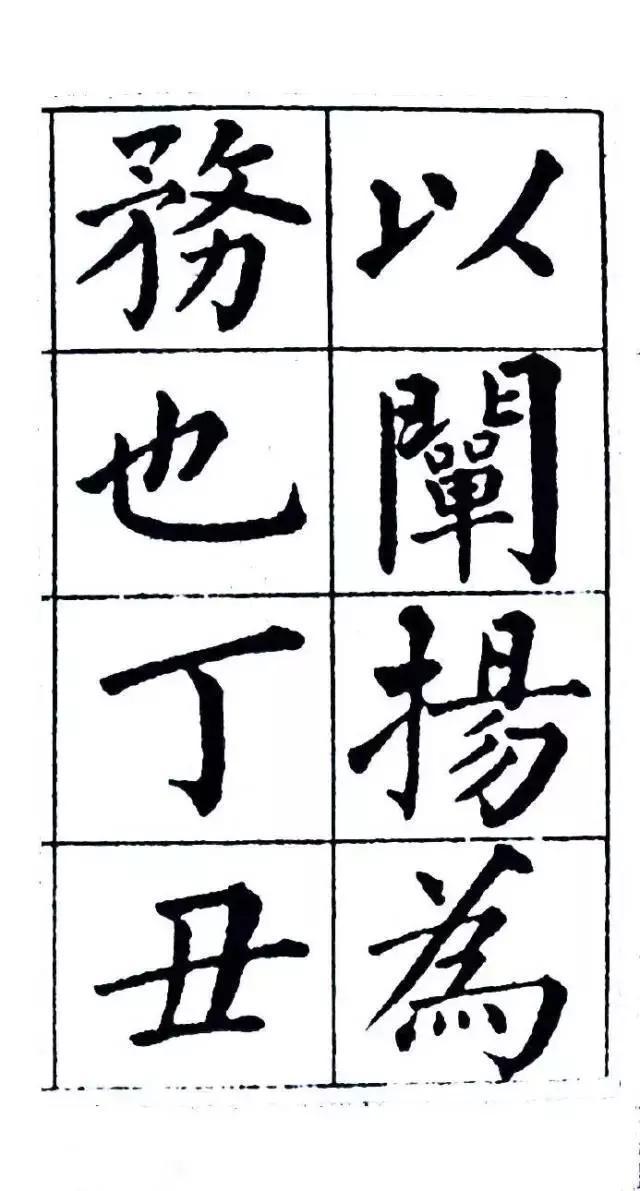 以闡揚為
務也丁丑